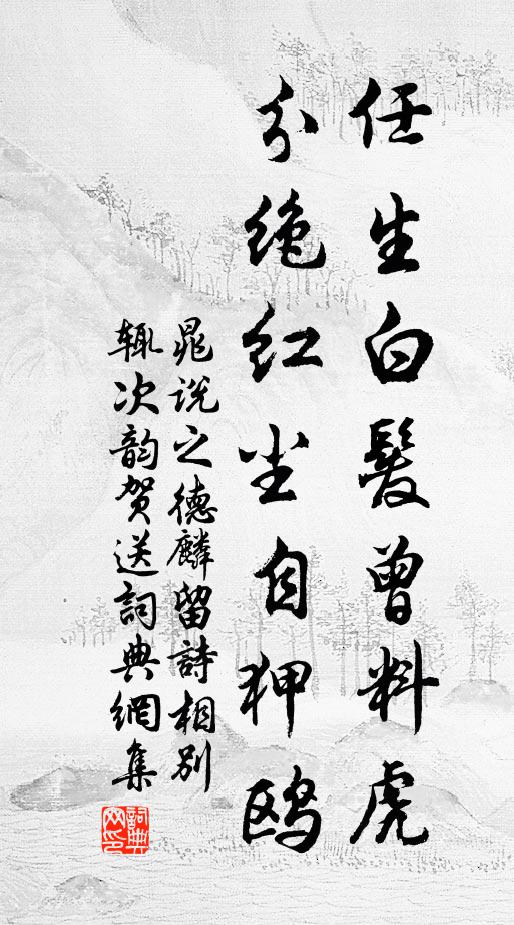 任生白髮曾料虎
分絶红尘自狎鸥
晁说之德麟留詩相别
辄次韵贺送詞典網集
詞典网印